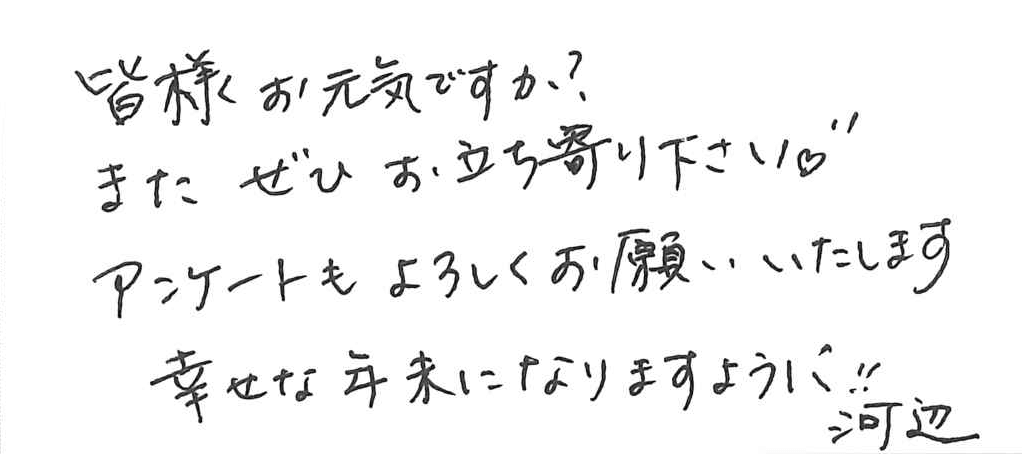 皆様 お元気ですか?
また ぜひ お立ち寄り下さい♡"
アンケートもよろしくお願いいたします
幸せな年末になりますように!!
河辺